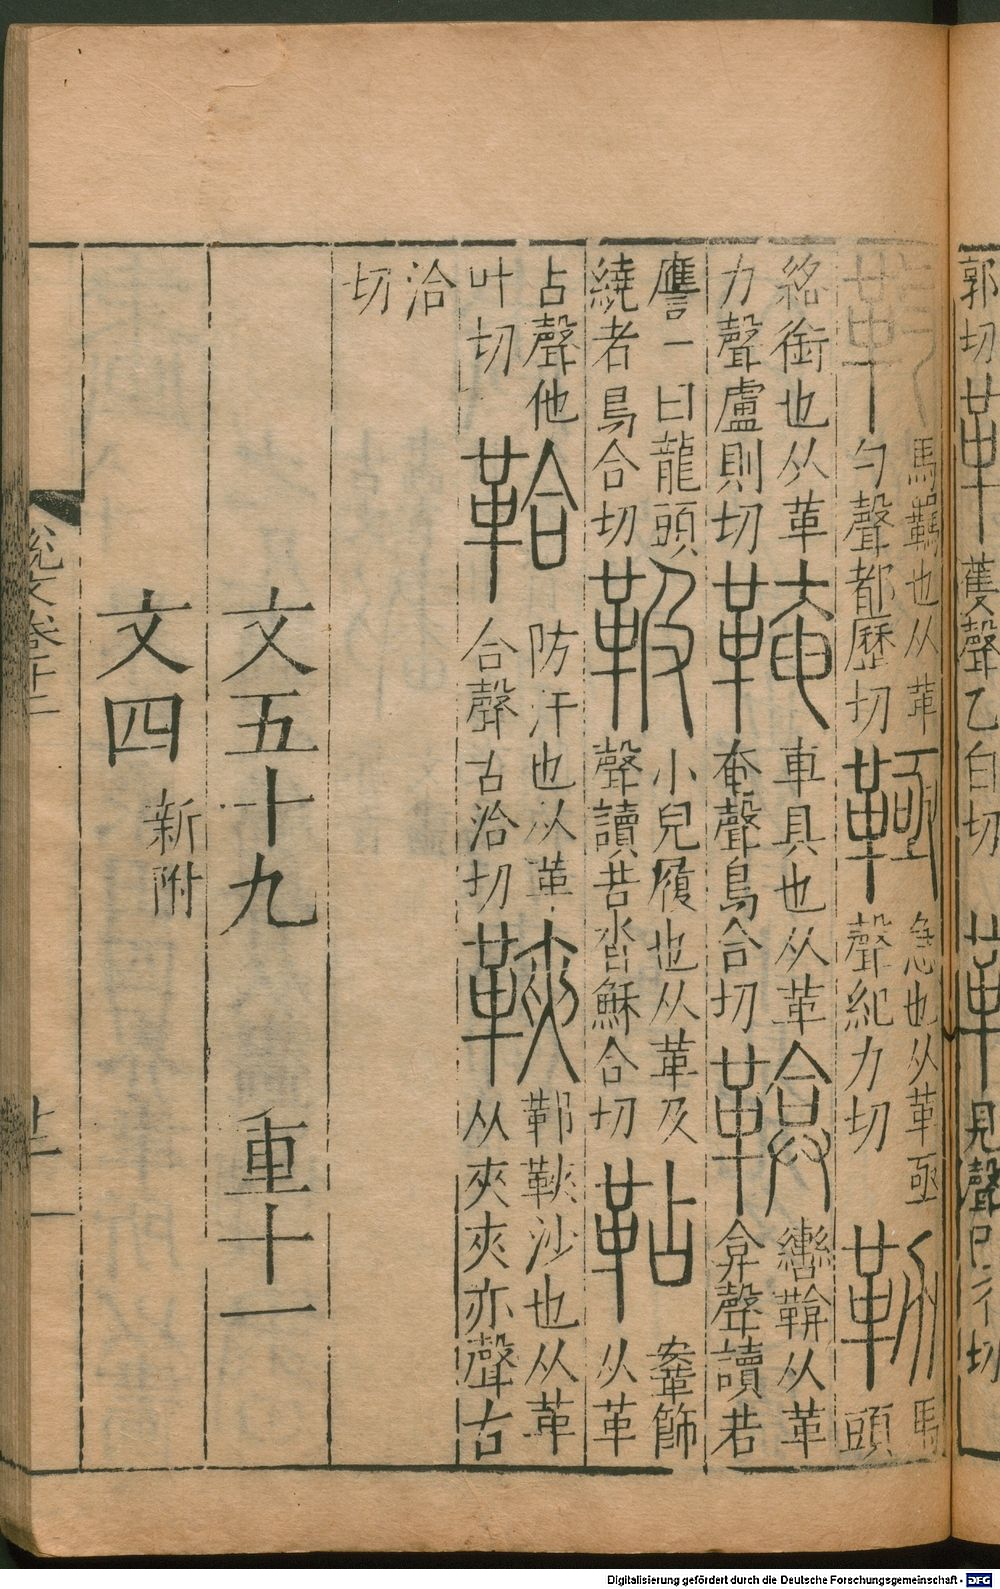 郭切
蒦聲乙白切
見聲
切
馬羈也从革
勺聲都歷切
急也从革亟
聲紀力切
馬
頭
絡銜也从革
力聲盧則切
車具也从革
奄聲烏合切
轡鞥从革
弇聲讀若
譍一曰龍頭
繞者烏合切
小兒履也从革及
聲讀若沓穌合切
鞌飾
从革
占聲他
叶切
防汗也从革
合聲古洽切
鞞鞅沙也从革
从夾夾亦聲古
洽
切
文五十九 重十一
文四 新附
說文卷十二
廿一
Digitalisierung gefördert durch die Deutsche Forschungsgemeinschaft - DFG